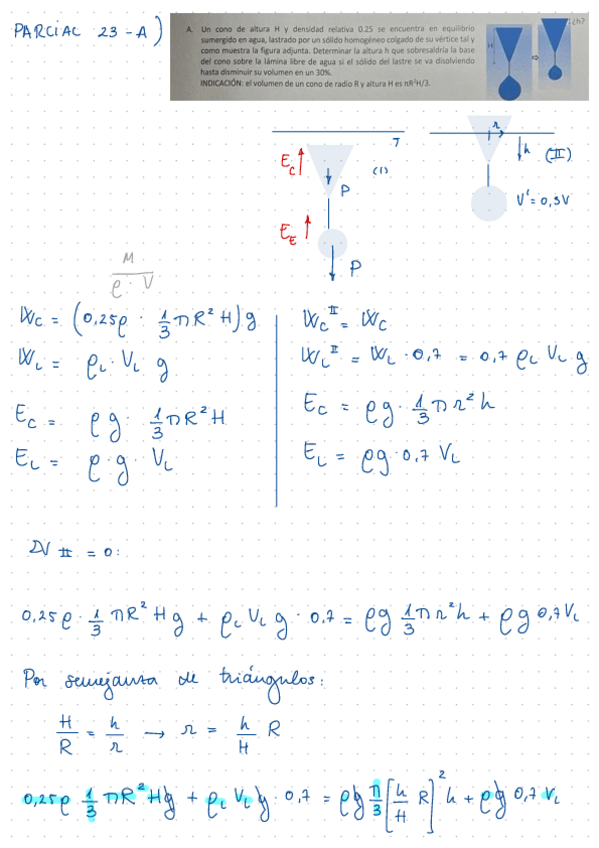 PARCIAL 23-A)
A. Un cono de altura H y densidad relativa 0.25 se encuentra en equilibrio
sumergido en agua, lastrado por un sólido homogéneo colgado de su vértice tal y
como muestra la figura adjunta. Determinar la altura h que sobresaldría la base
del cono sobre la lámina libre de agua si el sólido del lastre se va disolviendo
hasta disminuir su volumen en un 30%.
INDICACIÓN: el volumen de un cono de radio R y altura H es πR²H/3.
H
⇨
¿h?
E_C
P
E_E
P
(I)
r
h
(II)
V' = 0,3V
M
ρ · V
W_C = (0,25ρ · 1/3 π R² H) g
W_L = ρ_L · V_L g
E_C = ρg · 1/3 π R² H
E_L = ρ · g · V_L
W_C^II = W_C
W_L^II = W_L · 0,7 = 0,7 ρ_L V_L g
E_C = ρg · 1/3 π r² h
E_L = ρg · 0,7 V_L
II = 0:
0,25ρ · 1/3 π R² H g + ρ_L V_L g · 0,7 = ρg 1/3 π r² h + ρg 0,7 V_L
Por semejanza de triángulos:
H/R = h/r → r = h/H R
0,25ρ 1/3 π R² H g + ρ_L V_L g · 0,7 = ρg π/3 [h/H R]² h + ρg 0,7 V_L